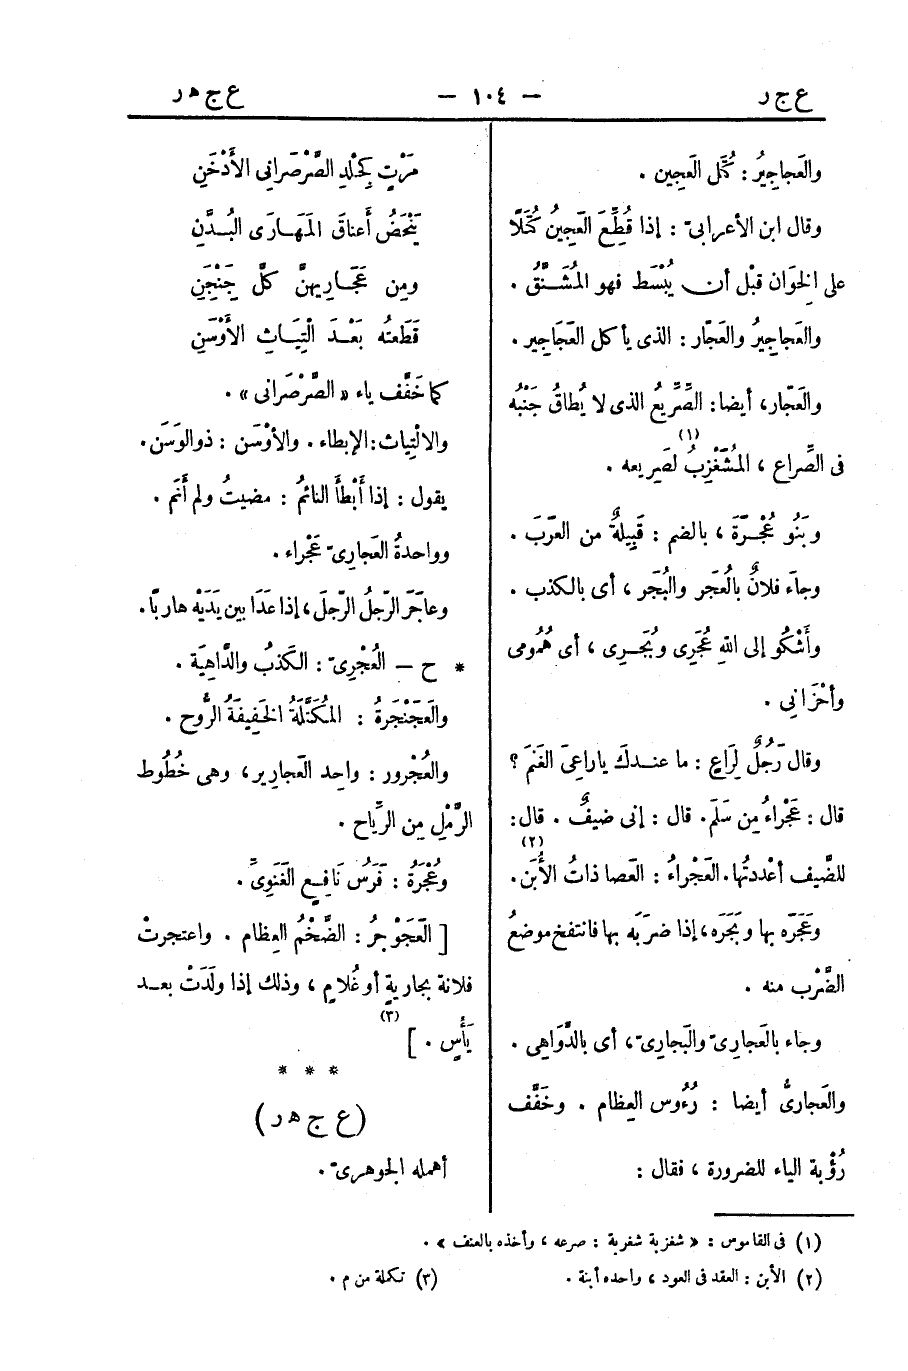 ع ج ر
— ١٠٤ —
ع ج هر
والعَجاجِيرُ : كُتَل العَجِين .
وقال ابن الأعرابىّ : إذا قُطِّعَ العَجِينُ كُتَلًا
على الِخوَان قبْل أن يُبْسَط فهو المُشَنَّقُ .
والعَجاجِيرُ والعَجّار : الذى يأكل العَجَاجِير .
والعَجّار، أيضا: الصِّرِّيعُ الذى لا يُطاقُ جَنْبُه
فى الصِّراع ، المُشَغْزِبُ(١) لصَرِيعه .
وبَنُو عُجْرَةَ ، بالضم : قَبِيلةٌ من العَرَب .
وجاءَ فلانٌ بالُعَجَر والبُجَر ، أى بالكذب .
وأَشْكُو إلى اللهِ عُجَرِى وبُجَرِى ، أى هُمُومى
وأحْزَانِى .
وقال رَجُلٌ لِرَاعٍ : ما عندكَ ياراعِىَ الغَنَم ؟
قال : عَجْراءُ مِن سَلَم. قال : إنى ضيفٌ . قال:
للضَّيف أعْددتُها. العَجْراءُ : العَصا ذاتُ الأُبَن(٢).
وعَجَرَه بها وبَجَره، إذا ضرَبَه بها فانتفخ موضعُ
الضَّرْب منه .
وجاء بالعَجارِىّ والبَجارِىّ، أى بالدَّوَاهِى .
والعَجارىُّ أيضا : رُءُوس العِظام . وخَفَّف
رُؤْبة الياء للضرورة ، فقال :
مَرْتٍ كَجِلْدِ الصَّرْصَرانِى الأَدْخَنِ
يَنْحَضُ أَعناقَ المَهَارَى البُدَّنِ
ومِن عَجَارِيهنَّ كلَّ جَنْجَنِ
قَطَعتُه بَعْدَ الْتِيَاثِ الأَوْسَنِ
كما خَفَّف ياء « الصَّرْصَرانى » .
والالْتِياث: الإبطاء. والأوْسَن : ذو الوَسَن.
يقول : إذا أَبْطأَ النائمُ : مضيتُ ولم أَنَم .
وواحدةُ العَجارىّ عَجْراء .
وعاجَرَ الرّجلُ الرّجلَ، إذا عَدَا بين يَدَيْه هاربًا.
* ح — العُجْرِىّ : الكَذبُ والدَّاهِيَة .
والعَجَنْجَرَةُ : المُكَتَّلَةُ الخَفِيفَةُ الرُّوح .
والعُجْرور : واحِد العَجارِير، وهى خُطُوط
الرَّمْلِ مِن الرِّياح .
وعُجْرَةُ : فَرَسُ نَافِعٍ الغَنَوِىّ .
[ العَجَوْجَرُ : الضَّخْمُ العِظام . واعتجرتْ
فلانة بجاريةٍ أو غُلامٍ ، وذلك إذا ولَدَتْ بعد
يَأْسٍ .](٣)
* * *
(ع ج هر)
أهمله الجوهرىّ .
(١) فى القاموس : « شغزبه شغزبة : صرعه ، وأخذه بالعنف » .
(٢) الأبن : العقد فى العود ، واحده أبنة .
(٣) تكملة من م .